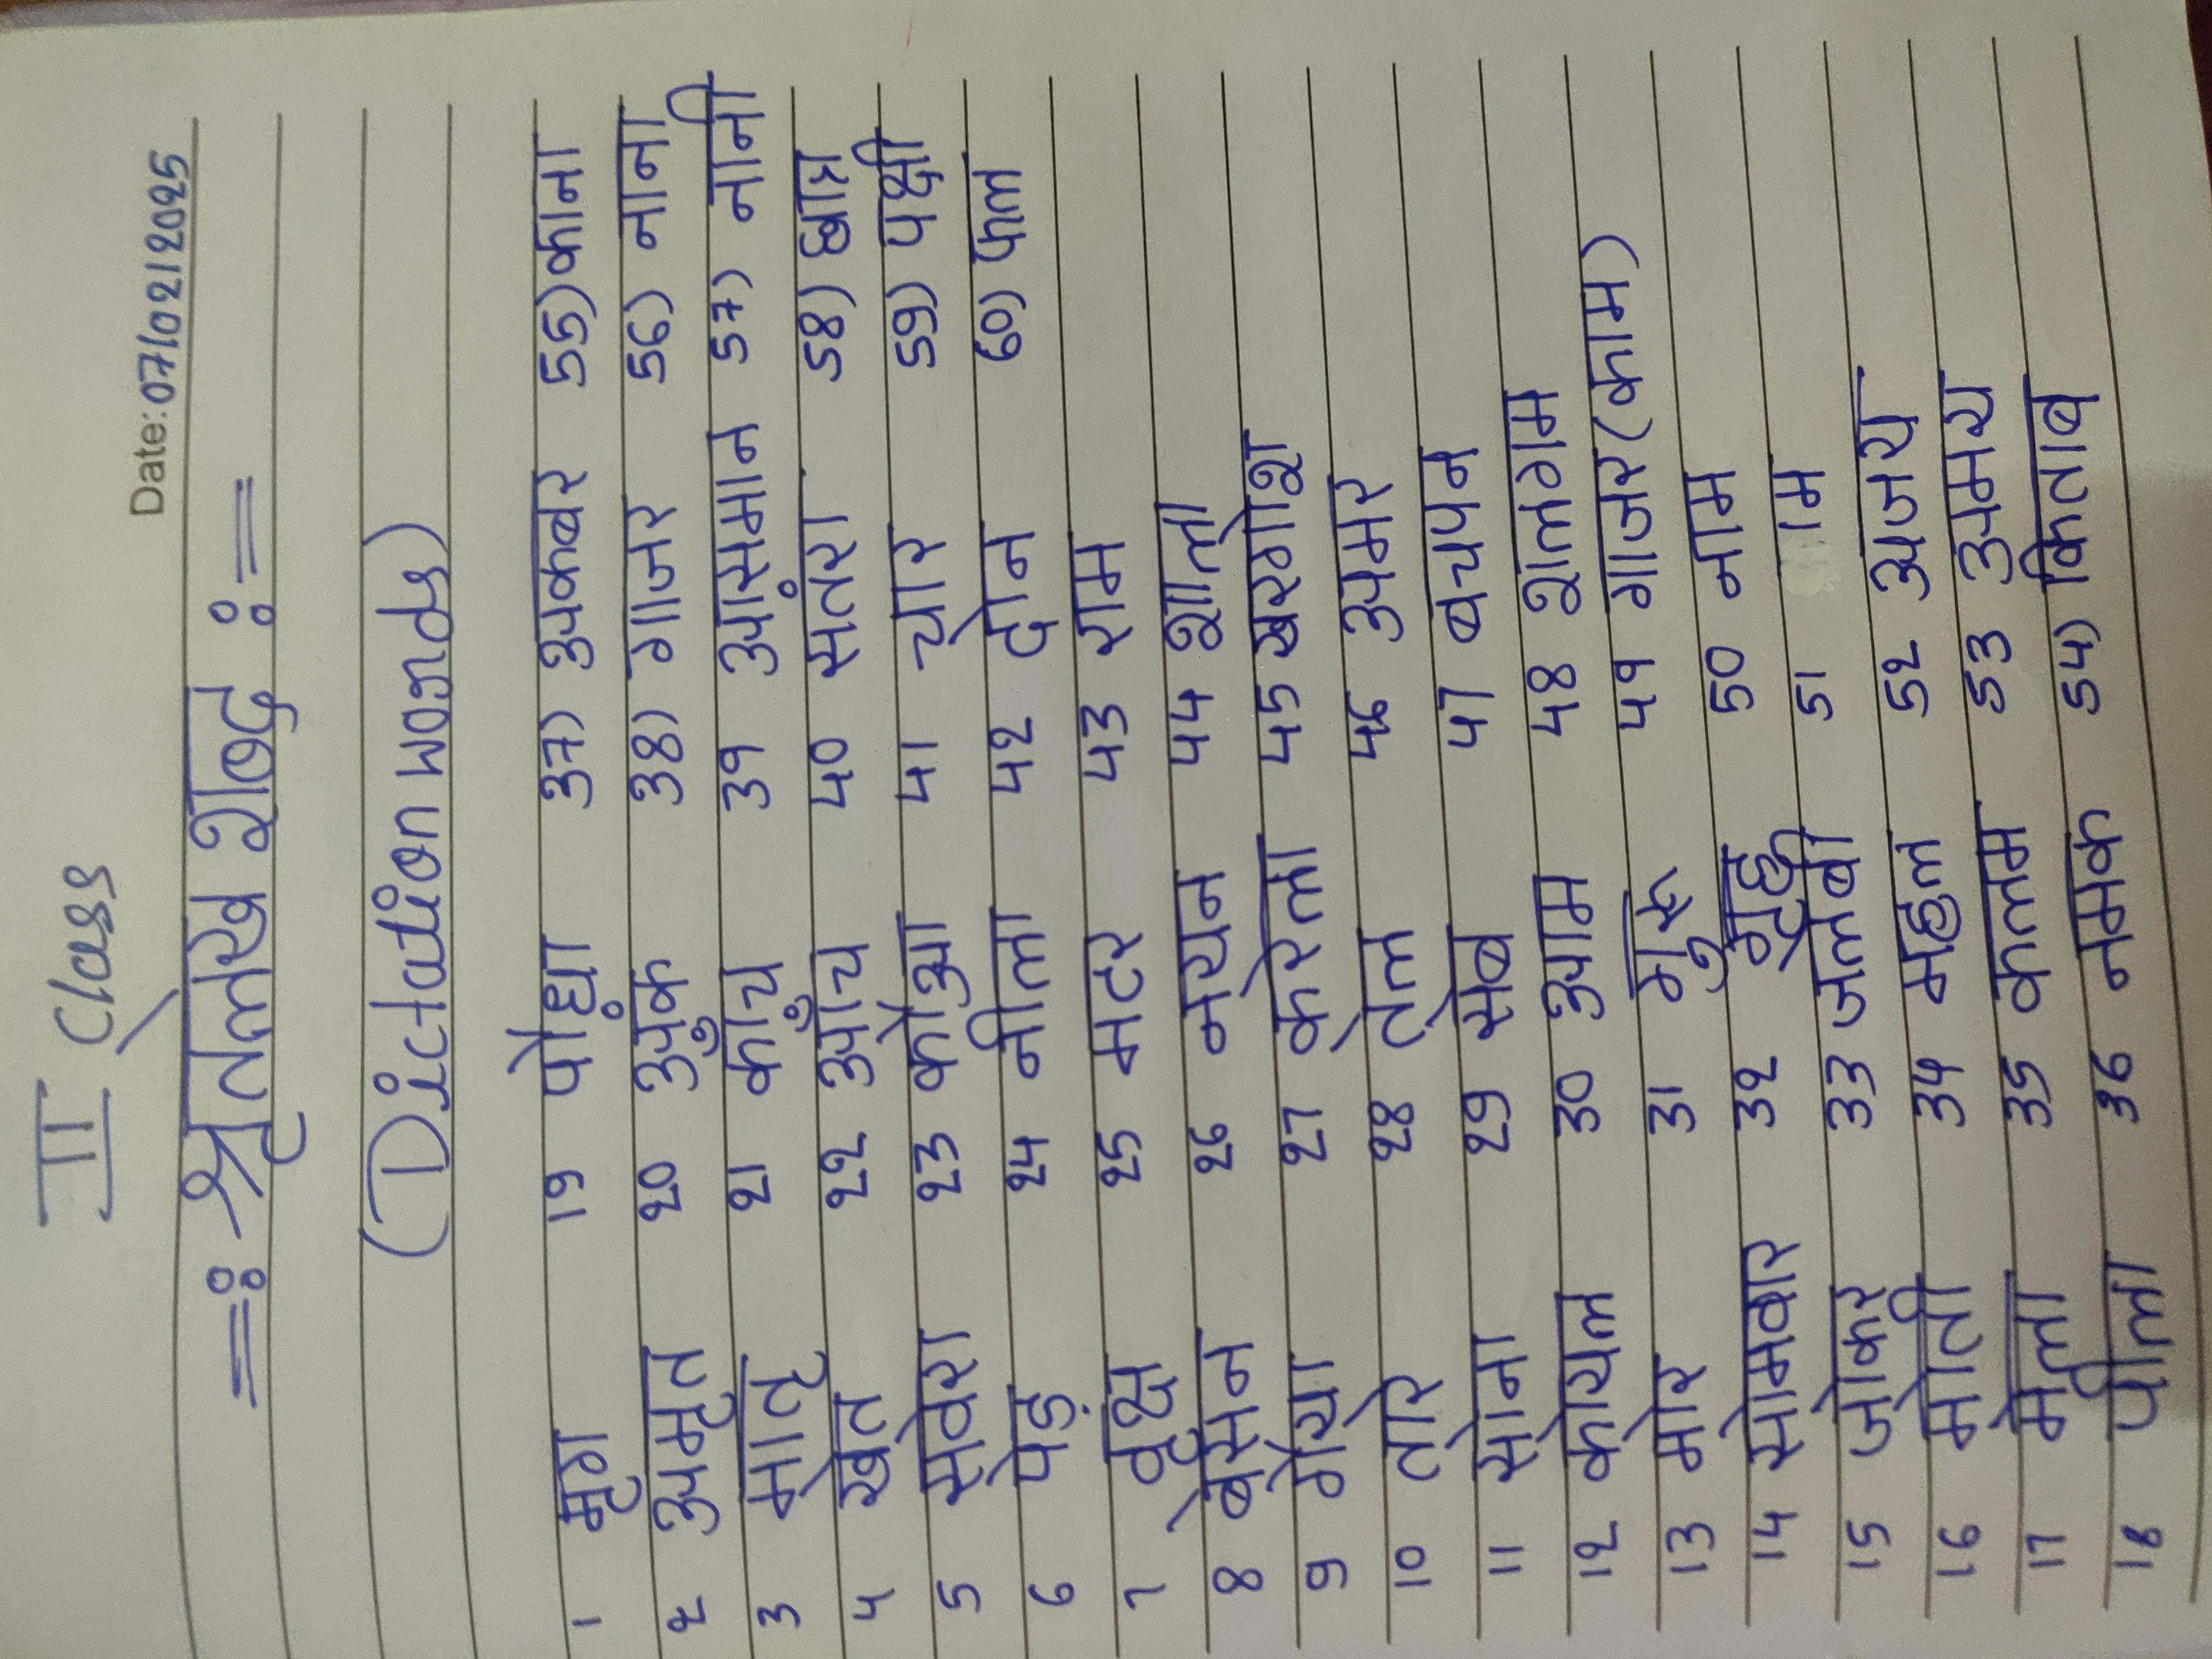 II Class
Date: 07/02/2025
=: श्रुतलेख शब्द :=
(Dictation words)
1 मृग 19 पौधा 37) अकबर 55) काना
2 अमृत 20 अंक 38) गाजर 56) नाना
3 मातृ 21 काँच 39 आसमान 57) नानी
4 खेत 22 आँच 40 संतरा 58) छात्र
5 सवेरा 23 कौआ 41 चार 59) पक्षी
6 पेड़ 24 नीला 42 60) फल
7 वृक्ष 25 मटर 43 राम
8 बेसन 26 नयन 44 शाला
9 गैया 27 करेला 45 खरगोश
10 तारे 28 तेल 46 अमर
11 सोना 29 सेब 47 बचपन
12 कोयल 30 आम 48 शलगम
13 मोर 31 गुरू 49 गाजर (काम)
14 सोमवार 32 गृह 50 नाम
15 जोकर 33 जलेबी 51
16 मोती 34 महल 52 अजय
17 मेला 35 कलम 53 अभय
18 पीला 36 नमक 54) किताब